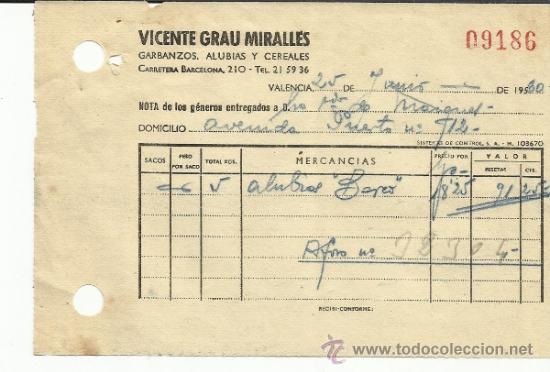 VICENTE GRAU MIRALLES
09186
GARBANZOS, ALUBIAS Y CEREALES
CARRETERA BARCELONA, 210 - TEL. 21 59 36
VALENCIA, 25 DE Junio DE 1960
NOTA de los géneros entregados a D.
DOMICILIO avenida Puerto nº
SISTEMAS DE CONTROL, S. A. - M. 103670
SACOS PESO POR SACO TOTAL KGS. MERCANCIAS PRECIO POR VALOR PESETAS CTS.
5 alubias 18'25 91 25
Aforo nº
RECIBI-CONFORME:
todocoleccion
www.todocoleccion.net